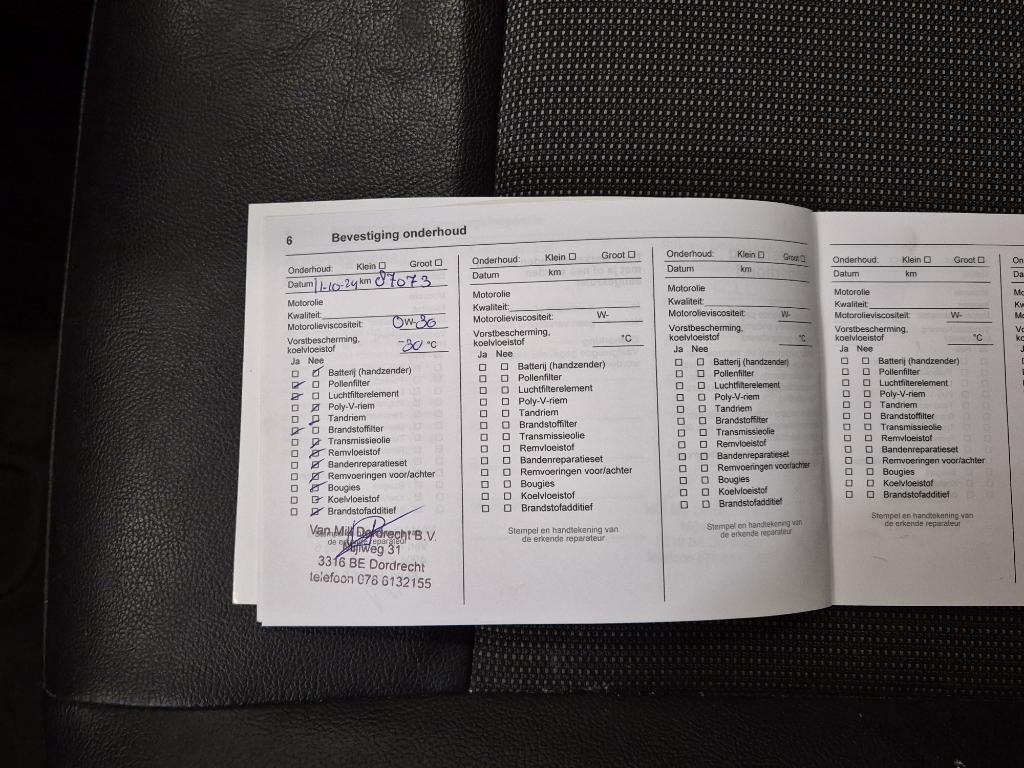 6 Bevestiging onderhoud
Onderhoud: Klein Groot
Datum 11-10-24 km 87073
Motorolie
Kwaliteit:
Motorolieviscositeit: 0W-30
Vorstbescherming,
koelvloeistof -30 °C
Ja Nee
Batterij (handzender)
Pollenfilter
Luchtfilterelement
Poly-V-riem
Tandriem
Brandstoffilter
Transmissieolie
Remvloeistof
Bandenreparatieset
Remvoeringen voor/achter
Bougies
Koelvloeistof
Brandstofadditief
Van Mill Dordrecht B.V.
de erkende reparateur
31
3316 BE Dordrecht
telefoon 078 6132155
Onderhoud: Klein Groot
Datum km
Motorolie
Kwaliteit:
Motorolieviscositeit: W-
Vorstbescherming,
koelvloeistof °C
Ja Nee
Batterij (handzender)
Pollenfilter
Luchtfilterelement
Poly-V-riem
Tandriem
Brandstoffilter
Transmissieolie
Remvloeistof
Bandenreparatieset
Remvoeringen voor/achter
Bougies
Koelvloeistof
Brandstofadditief
Stempel en handtekening van
de erkende reparateur
Onderhoud: Klein Groot
Datum km
Motorolie
Kwaliteit:
Motorolieviscositeit: W-
Vorstbescherming,
koelvloeistof °C
Ja Nee
Batterij (handzender)
Pollenfilter
Luchtfilterelement
Poly-V-riem
Tandriem
Brandstoffilter
Transmissieolie
Remvloeistof
Bandenreparatieset
Remvoeringen voor/achter
Bougies
Koelvloeistof
Brandstofadditief
Stempel en handtekening van
de erkende reparateur
Onderhoud: Klein Groot
Datum km
Motorolie
Kwaliteit:
Motorolieviscositeit: W-
Vorstbescherming,
koelvloeistof °C
Ja Nee
Batterij (handzender)
Pollenfilter
Luchtfilterelement
Poly-V-riem
Tandriem
Brandstoffilter
Transmissieolie
Remvloeistof
Bandenreparatieset
Remvoeringen voor/achter
Bougies
Koelvloeistof
Brandstofadditief
Stempel en handtekening van
de erkende reparateur